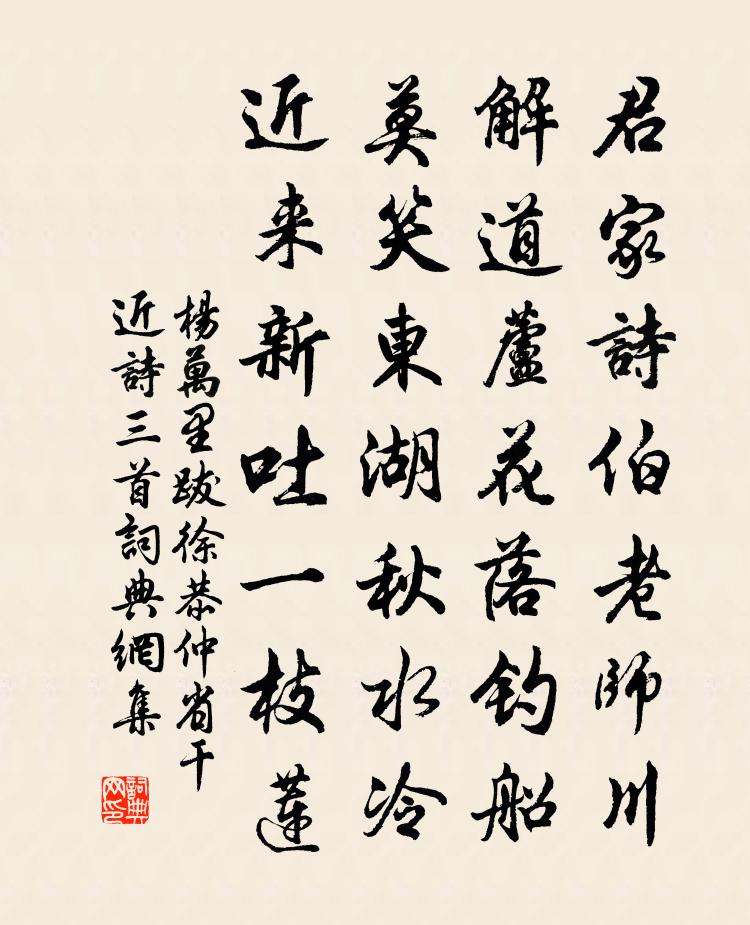 君家詩伯老師川
解道蘆花落钓船
莫笑東湖秋水冷
近来新吐一枝蓮
楊萬里跋徐恭仲省干
近詩三首詞典網集
詞典网印